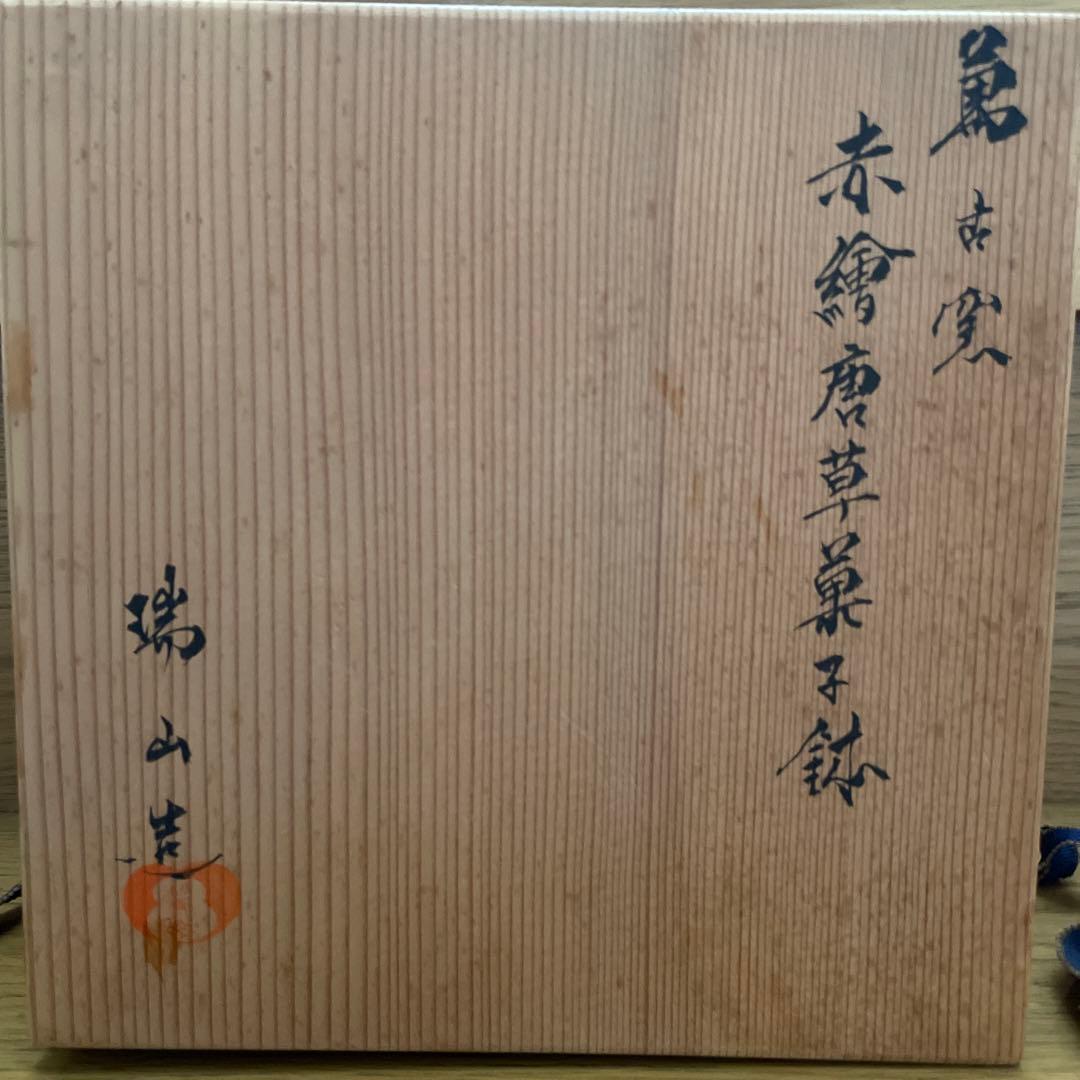 萬古窯
赤繪唐草菓子鉢
瑞山造